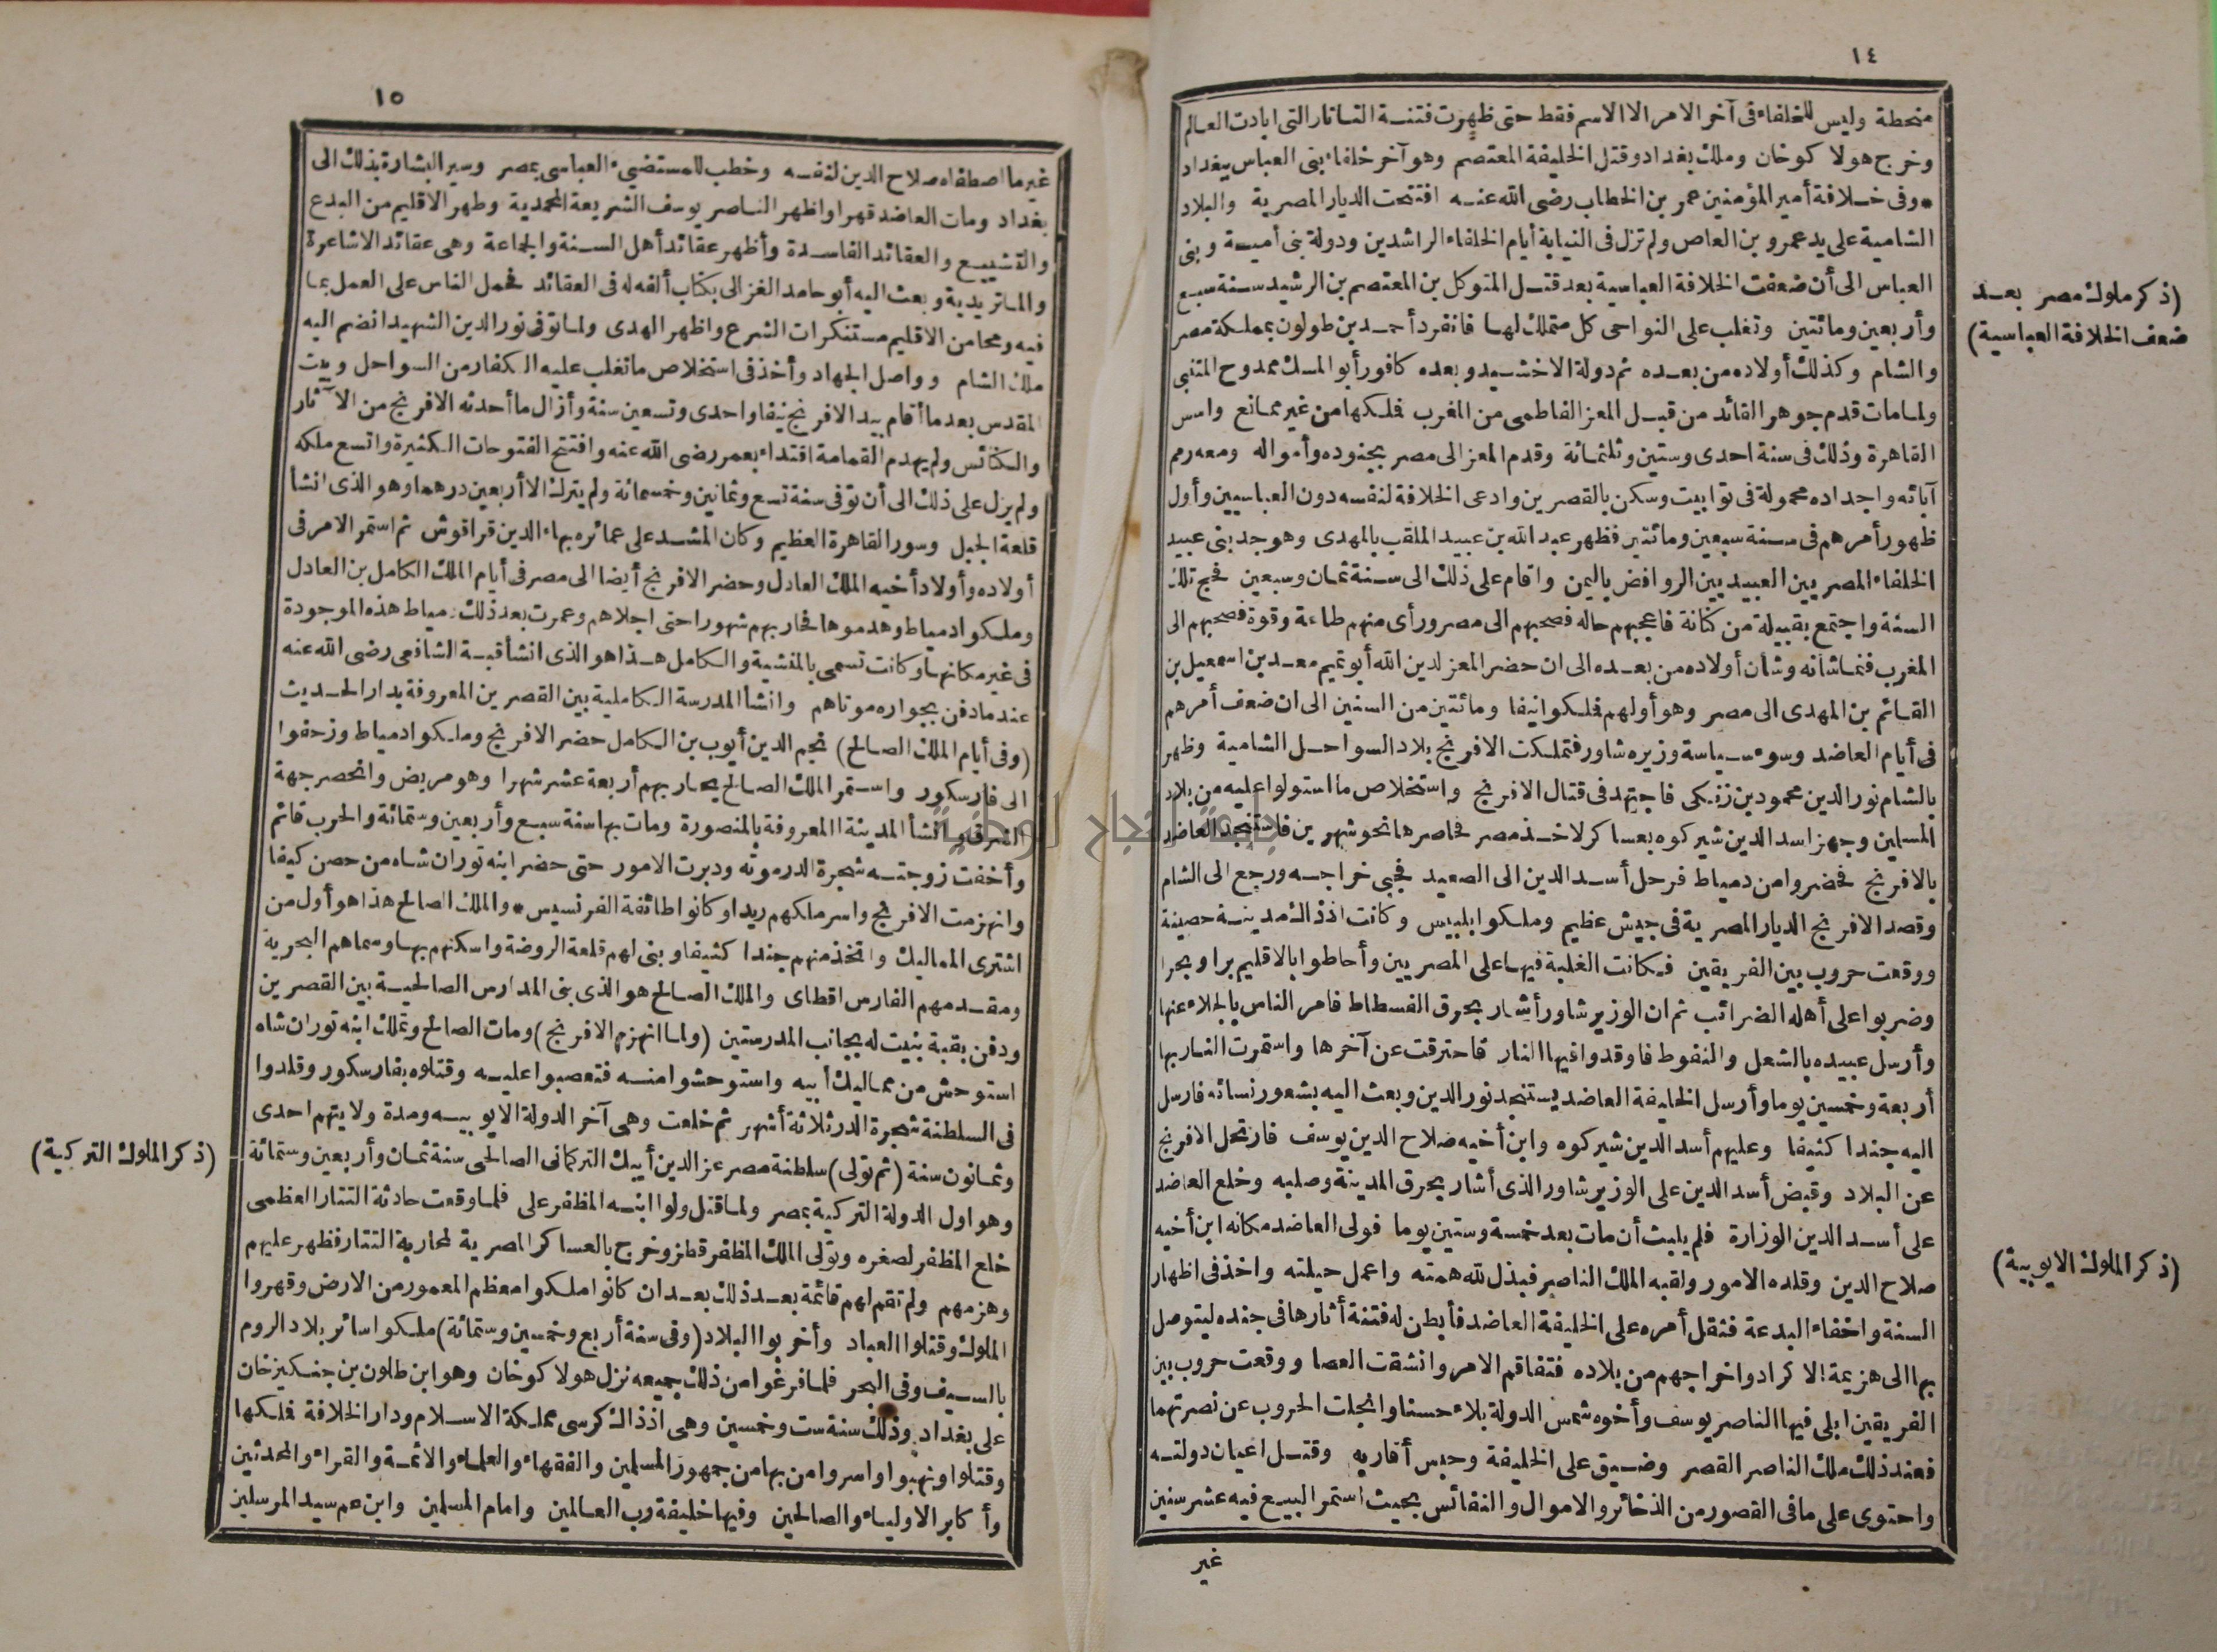 ١٤
منحطة وليس للخلفاء فى آخر الامر الا الاسم فقط حتى ظهرت فتنة التاتار التى ابادت العالم
وخرج هولا كوخان وملك بغداد وقتل الخليفة المعتصم وهو آخر خلفاء بنى العباس ببغداد
* وفى خلافة أمير المؤمنين عمر بن الخطاب رضى الله عنه افتتحت الديار المصرية والبلاد
الشامية على يد عمرو بن العاص ولم تزل فى النيابة أيام الخلفاء الراشدين ودولة بنى أمية وبنى
العباس الى أن ضعفت الخلافة العباسية بعد قتل المتوكل بن المعتصم بن الرشيد سنة سبع
وأربعين ومائتين وتغلب على النواحى كل متملك لها فانفرد أحمد بن طولون بمملكة مصر
والشام وكذلك أولاده من بعده ثم دولة الاخشيد وبعده كافور أبو المسك ممدوح المتنبى
ولما مات قدم جوهر القائد من قبل المعز الفاطمى من المغرب فملكها من غير ممانع واسس
القاهرة وذلك فى سنة احدى وستين وثلثمائة وقدم المعز الى مصر بجنوده وأمواله ومعه رمم
آبائه واجداده محمولة فى توابيت وسكن بالقصرين وادعى الخلافة لنفسه دون العباسيين وأول
ظهور أمرهم فى سنة سبعين ومائتين فظهر عبد الله بن عبيد الملقب بالمهدى وهو جد بنى عبيد
الخلفاء المصريين العبيديين الروافض باليمن واقام على ذلك الى سنة ثمان وسبعين فحج تلك
السنة واجتمع بقبيلة من كنانة فاعجبهم حاله فصحبهم الى مصر ورأى منهم طاعة وقوة فصحبهم الى
المغرب فنما شانه وشان أولاده من بعده الى ان حضر المعز لدين الله أبو تميم معد بن اسمعيل بن
القائم بن المهدى الى مصر وهو أولهم فملكوا نيفا ومائتين من السنين الى ان ضعف أمرهم
فى أيام العاضد وسوء سياسة وزيره شاور فتملكت الافرنج بلاد السواحل الشامية وظهر
بالشام نور الدين محمود بن زنكى فاجتهد فى قتال الافرنج واستخلاص ما استولوا عليه من بلاد
المسلين وجهز اسد الدين شيركوه بعساكر لاخذ مصر فحاصرها نحو شهرين فاستنجد العاضد
بالافرنج فحضروا من دمياط فرحل أسد الدين الى الصعيد فجبى خراجه ورجع الى الشام
وقصد الافرنج الديار المصرية فى جيش عظيم وملكوا بلبيس وكانت اذذاك مدينة حصينة
ووقعت حروب بين الفريقين فكانت الغلبة فيها على المصريين وأحاطوا بالاقليم برا وبحرا
وضربوا على أهله الضرائب ثم ان الوزير شاور أشار بحرق الفسطاط فامر الناس بالجلاء عنها
وأرسل عبيده بالشعل والنفوط فاوقدوا فيها النار فاحترقت عن آخرها واستمرت النار بها
أربعة وخمسين يوما وأرسل الخليفة العاضد يستنجد نور الدين وبعث اليه بشعور نسائه فارسل
اليه جندا كثيفا وعليهم أسد الدين شيركوه وابن أخيه صلاح الدين يوسف فارتحل الافرنج
عن البلاد وقبض أسد الدين على الوزير شاور الذى أشار بحرق المدينة وصلبه وخلع العاضد
على أسد الدين الوزارة فلم يلبث أن مات بعد خمسة وستين يوما فولى العاضد مكانه ابن أخيه
صلاح الدين وقلده الامور ولقبه الملك الناصر فبذل لله همته واعمل حيلته واخذ فى اظهار
السنة واخفاء البدعة فثقل أمره على الخليفة العاضد فأبطن له فتنة أثارها فى جنده ليتوصل
بها الى هزيمة الاكراد واخراجهم من بلاده فتفاقم الامر وانشقت العصا ووقعت حروب بين
الفريقين ابلى فيها الناصر يوسف وأخوه شمس الدولة بلاء حسنا وانجلت الحروب عن نصرتهما
فعند ذلك ملك الناصر القصر وضيق على الخليفة وحبس أقاربه وقتل اعيان دولته
واحتوى على ما فى القصور من الذخائر والاموال والنفائس بحيث استمر البيع فيه عشر سنين
غير
(ذكر ملوك مصر بعد
ضعف الخلافة العباسية)
(ذكر الملوك الايوبية)
١٥
غير ما اصطفاه صلاح الدين لنفسه وخطب للمستضىء العباسى بمصر وسير البشارة بذلك الى
بغداد ومات العاضد قهرا واظهر الناصر يوسف الشريعة المحمدية وطهر الاقليم من البدع
والتشييع والعقائد الفاسدة وأظهر عقائد أهل السنة والجماعة وهى عقائد الاشاعرة
والماتريدية وبعث اليه أبو حامد الغزالى بكتاب ألفه له فى العقائد فحمل الناس على العمل بما
فيه ومحا من الاقليم مستنكرات الشرع واظهر الهدى ولما توفى نور الدين الشهيد انضم اليه
ملك الشام وواصل الجهاد وأخذ فى استخلاص ما تغلب عليه الكفار من السواحل وبيت
المقدس بعد ما أقام بيد الافرنج نيفا واحدى وتسعين سنة وأزال ما أحدثه الافرنج من الآثار
والكنائس ولم يهدم القمامة اقتداء بعمر رضى الله عنه وافتتح الفتوحات الكثيرة واتسع ملكه
ولم يزل على ذلك الى أن توفى سنة تسع وثمانين وخمسمائة ولم يترك الا أربعين درهما وهو الذى انشأ
قلعة الجبل وسور القاهرة العظيم وكان المشد على عمائره بهاء الدين قراقوش ثم استمر الامر فى
أولاده وأولاد أخيه الملك العادل وحضر الافرنج أيضا الى مصر فى أيام الملك الكامل بن العادل
وملكوا دمياط وهدموها فحاربهم شهورا حتى اجلاهم وعمرت بعد ذلك دمياط هذه الموجودة
فى غير مكانها وكانت تسمى بالمنشية والكامل هذا هو الذى انشأ قبة الشافعى رضى الله عنه
عند ما دفن بجواره موتاهم وانشأ المدرسة الكاملية بين القصرين المعروفة بدار الحديث
(وفى أيام الملك الصالح) نجم الدين أيوب بن الكامل حضر الافرنج وملكوا دمياط وزحفوا
الى فارسكور واستمر الملك الصالح يحاربهم أربعة عشر شهرا وهو مريض وانحصر جهة
الشرق وانشأ المدينة المعروفة بالمنصورة ومات بها سنة سبع وأربعين وستمائة والحرب قائم
وأخفت زوجته شجرة الدر موته ودبرت الامور حتى حضر ابنه توران شاه من حصن كيفا
وانهزمت الافرنج واسر ملكهم ريدا وكانوا طائفة الفرنسيس * والملك الصالح هذا هو أول من
اشترى المماليك واتخذ منهم جندا كثيفا وبنى لهم قلعة الروضة واسكنهم بها وسماهم البحرية
ومقدمهم الفارس اقطاى والملك الصالح هو الذى بنى المدارس الصالحية بين القصرين
ودفن بقبة بنيت له بجانب المدرستين (ولما انهزم الافرنج) ومات الصالح وتملك ابنه توران شاه
استوحش من مماليك أبيه واستوحشوا منه فتعصبوا عليه وقتلوه بفارسكور وقلدوا
فى السلطنة شجرة الدر ثلاثة أشهر ثم خلعت وهى آخر الدولة الايوبيه ومدة ولايتهم احدى
وثمانون سنة (ثم تولى) سلطنة مصر عز الدين أيبك التركمانى الصالحى سنة ثمان وأربعين وستمائة
وهو اول الدولة التركية بمصر ولما قتل ولوا ابنه المظفر على فلما وقعت حادثة التتار العظمى
خلع المظفر لصغره وتولى الملك المظفر قطز وخرج بالعساكر المصرية لمحاربة التتار فظهر عليهم
وهزمهم ولم تقم لهم قائمة بعد ذلك بعد ان كانوا ملكوا معظم المعمور من الارض وقهروا
الملوك وقتلوا العباد وأخربوا البلاد (وفى سنة أربع وخمسين وستمائة) ملكوا سائر بلاد الروم
بالسيف وفى البحر فلما فرغوا من ذلك جميعه نزل هولا كوخان وهو ابن طلون بن جنكيزخان
على بغداد وذلك سنة ست وخمسين وهى اذذاك كرسى مملكة الاسلام ودار الخلافة فملكها
وقتلوا ونهبوا واسروا من بها من جمهور المسلمين والفقهاء والعلماء والائمة والقراء والمحدثين
وأكابر الاولياء والصالحين وفيها خليفة رب العالمين وامام المسلمين وابن عم سيد المرسلين
(ذكر الملوك التركية)
جامعة النجاح الوطنية